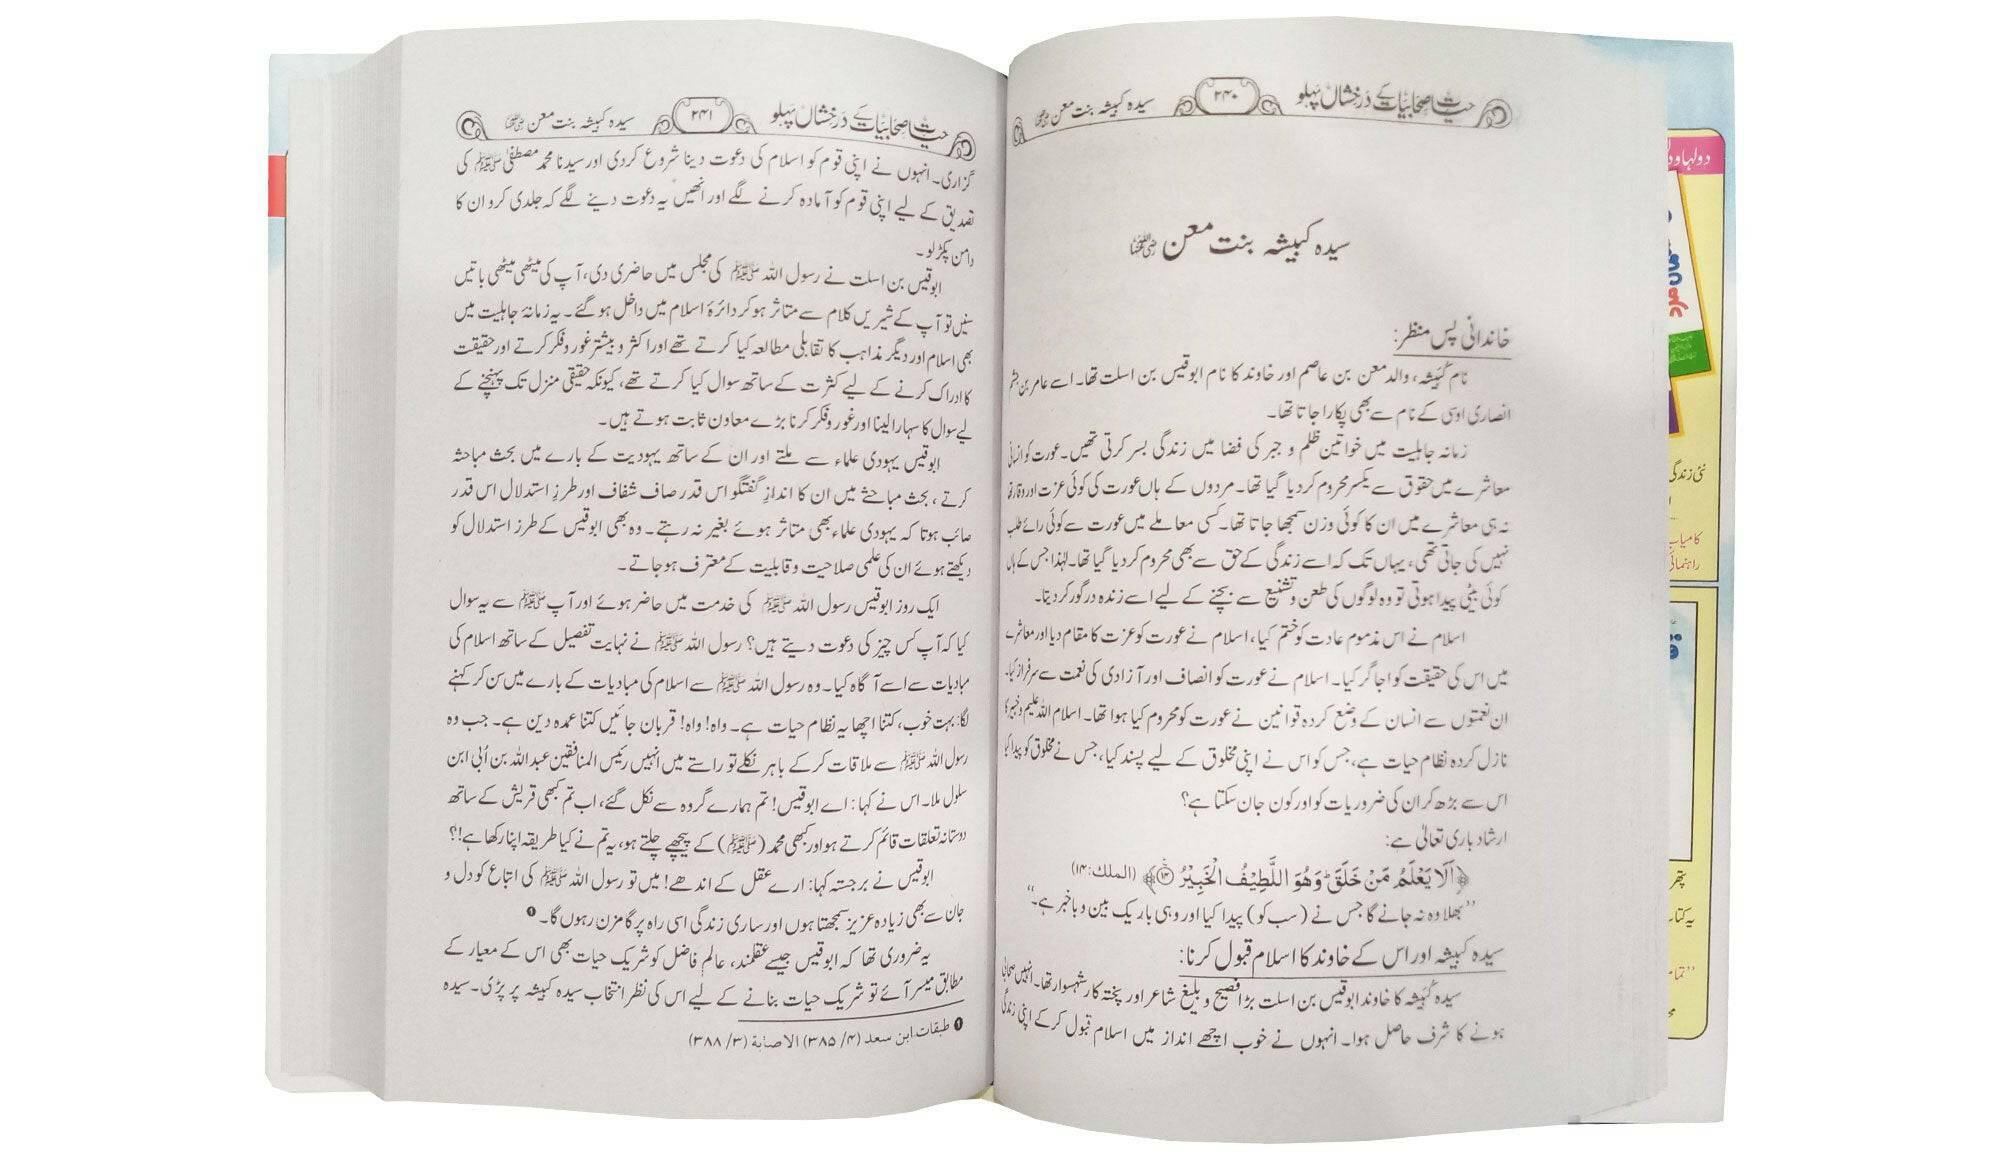 حیات صحابیات کے درخشاں پہلو ۲۴۰ سیدہ کبیشہ بنت معن رضی اللہ عنہا
سیدہ کبیشہ بنت معن رضی اللہ عنہا
خاندانی پس منظر:
نام کبیشہ، والد معن بن عاصم اور خاوند کا نام ابوقیس بن اسلت تھا۔ اسے عامر بن جشم
انصاری اوسی کے نام سے بھی پکارا جاتا تھا۔
زمانہ جاہلیت میں خواتین ظلم و جبر کی فضا میں زندگی بسر کرتی تھیں۔ عورت کو انسانی
معاشرے میں حقوق سے یکسر محروم کر دیا گیا تھا۔ مردوں کے ہاں عورت کی کوئی عزت اور وقار تھا
نہ ہی معاشرے میں ان کا کوئی وزن سمجھا جاتا تھا۔ کسی معاملے میں عورت سے کوئی رائے طلب
نہیں کی جاتی تھی، یہاں تک کہ اسے زندگی کے حق سے بھی محروم کر دیا گیا تھا۔ لہٰذا جس کے ہاں
کوئی بیٹی پیدا ہوتی تو وہ لوگوں کی طعن و تشنیع سے بچنے کے لیے اسے زندہ درگور کر دیتا۔
اسلام نے اس مذموم عادت کو ختم کیا، اسلام نے عورت کو عزت کا مقام دیا اور معاشرے
میں اس کی حقیقت کو اجاگر کیا۔ اسلام نے عورت کو انصاف اور آزادی کی نعمت سے سرفراز کیا۔
ان نعمتوں سے انسان کے وضع کردہ قوانین نے عورت کو محروم کیا ہوا تھا۔ اسلام اللہ علیم و خبیر کا
نازل کردہ نظام حیات ہے، جس کو اس نے اپنی مخلوق کے لیے پسند کیا، جس نے مخلوق کو پیدا کیا
اس سے بڑھ کر ان کی ضروریات کو اور کون جان سکتا ہے؟
ارشاد باری تعالیٰ ہے:
﴿اَلَا يَعْلَمُ مَنْ خَلَقَ ؕ وَهُوَ اللَّطِيْفُ الْخَبِيْرُ ۝﴾ (الملك: ۱۴)
”بھلا وہ نہ جانے گا جس نے (سب کو) پیدا کیا اور وہی باریک بین و باخبر ہے۔“
سیدہ کبیشہ اور اس کے خاوند کا اسلام قبول کرنا:
سیدہ کبیشہ کا خاوند ابوقیس بن اسلت بڑا فصیح و بلیغ شاعر اور پختہ کار شہسوار تھا۔ انہیں صحابی
ہونے کا شرف حاصل ہوا۔ انہوں نے خوب اچھے انداز میں اسلام قبول کر کے اپنی زندگی
حیات صحابیات کے درخشاں پہلو ۲۴۱ سیدہ کبیشہ بنت معن رضی اللہ عنہا
گزاری۔ انہوں نے اپنی قوم کو اسلام کی دعوت دینا شروع کر دی اور سیدنا محمد مصطفیٰ ﷺ کی
تصدیق کے لیے اپنی قوم کو آمادہ کرنے لگے اور انھیں یہ دعوت دینے لگے کہ جلدی کرو ان کا
دامن پکڑ لو۔
ابوقیس بن اسلت نے رسول اللہ ﷺ کی مجلس میں حاضری دی، آپ کی میٹھی میٹھی باتیں
سنیں تو آپ کے شیریں کلام سے متاثر ہو کر دائرۂ اسلام میں داخل ہو گئے۔ یہ زمانۂ جاہلیت میں
بھی اسلام اور دیگر مذاہب کا تقابلی مطالعہ کیا کرتے تھے اور اکثر و بیشتر غور و فکر کرتے اور حقیقت
کا ادراک کرنے کے لیے کثرت کے ساتھ سوال کیا کرتے تھے، کیونکہ حقیقی منزل تک پہنچنے کے
لیے سوال کا سہارا لینا اور غور و فکر کرنا بڑے معاون ثابت ہوتے ہیں۔
ابوقیس یہودی علماء سے ملتے اور ان کے ساتھ یہودیت کے بارے میں بحث مباحثہ
کرتے، بحث مباحثے میں ان کا انداز گفتگو اس قدر صاف شفاف اور طرزِ استدلال اس قدر
صائب ہوتا کہ یہودی علماء بھی متاثر ہوئے بغیر نہ رہتے۔ وہ بھی ابوقیس کے طرز استدلال کو
دیکھتے ہوئے ان کی علمی صلاحیت و قابلیت کے معترف ہو جاتے۔
ایک روز ابوقیس رسول اللہ ﷺ کی خدمت میں حاضر ہوئے اور آپ ﷺ سے یہ سوال
کیا کہ آپ کس چیز کی دعوت دیتے ہیں؟ رسول اللہ ﷺ نے نہایت تفصیل کے ساتھ اسلام کی
مبادیات سے اسے آگاہ کیا۔ وہ رسول اللہ ﷺ سے اسلام کی مبادیات کے بارے میں سن کر کہنے
لگا: بہت خوب، کتنا اچھا یہ نظام حیات ہے۔ واہ! واہ! قربان جائیں کتنا عمدہ دین ہے۔ جب وہ
رسول اللہ ﷺ سے ملاقات کر کے باہر نکلے تو راستے میں انہیں رئیس المنافقین عبداللہ بن اُبی ابن
سلول ملا۔ اس نے کہا: اے ابوقیس! تم ہمارے گروہ سے نکل گئے، اب تم کبھی قریش کے ساتھ
دوستانہ تعلقات قائم کرتے ہو اور کبھی محمد (ﷺ) کے پیچھے چلتے ہو، یہ تم نے کیا طریقہ اپنا رکھا ہے!؟
ابوقیس نے برجستہ کہا: ارے عقل کے اندھے! میں تو رسول اللہ ﷺ کی اتباع کو دل و
جان سے بھی زیادہ عزیز سمجھتا ہوں اور ساری زندگی اسی راہ پر گامزن رہوں گا۔ ❶
یہ ضروری تھا کہ ابوقیس جیسے عقلمند، عالم فاضل کو شریک حیات بھی اس کے معیار کے
مطابق میسر آئے تو شریک حیات بنانے کے لیے اس کی نظر انتخاب سیدہ کبیشہ پر پڑی۔ سیدہ
❶ طبقات ابن سعد (۴/ ۳۸۵) الاصابة (۳/ ۳۸۸)
دولہا و د
نئی زندگی
کامیاب
راہنمائی
پھر
یہ کتاب